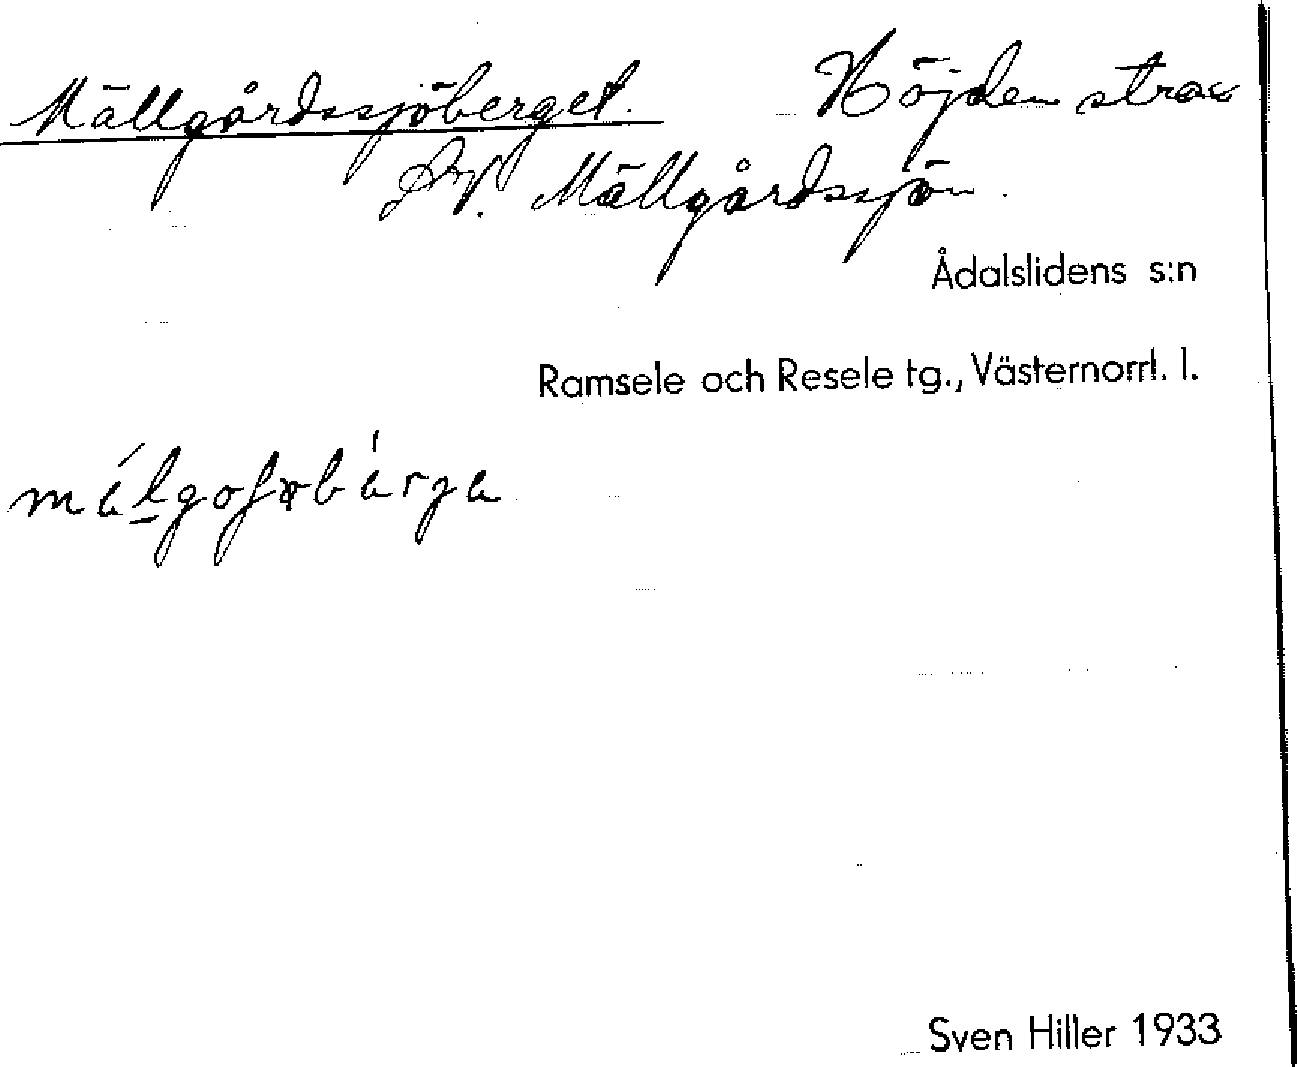 Mällgårdssjöberget. Höjden strax
SV. Mällgårdssjön.
Ådalslidens s:n
Ramsele och Resele tg., Västernorrl. l.
Sven Hiller 1933